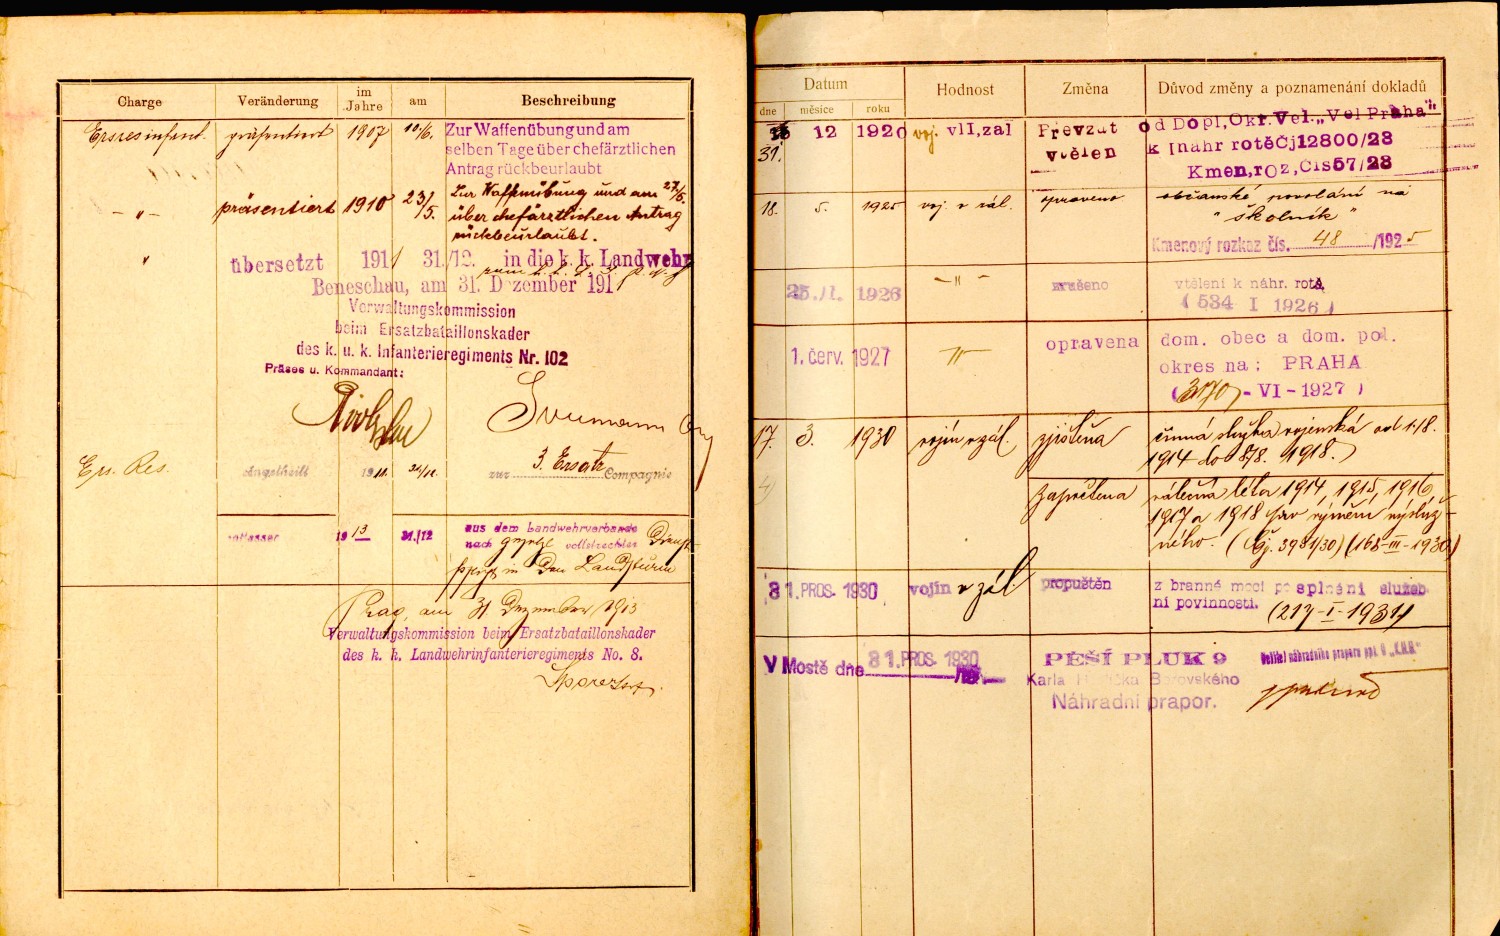 Charge Veränderung im Jahre am Beschreibung
Ersresinfant. präsentiert 1907 10/6. Zur Waffenübung und am
selben Tage über chefärztlichen
Antrag rückbeurlaubt
— „ — präsentiert 1910 23/5. Zur Waffenübung und am 27/5.
über chefärztlichen Antrag
rückbeurlaubt.
„ übersetzt 191 31./12. in die k. k. Landwehr
Beneschau, am 31. Dezember 191
Verwaltungskommission
beim Ersatzbataillonskader
des k. u. k. Infanterieregiments Nr. 102
Präses u. Kommandant:
Ers. Res. zur 3. Ersatz Compagnie
1913 31./12 aus dem Landwehrverbande
nach vollstreckter Dienst-
pflicht in den Landsturm
Prag, am 31 Dezember 1913
Verwaltungskommission beim Ersatzbataillonskader
des k. k. Landwehrinfanterieregiments No. 8.
Datum Hodnost Změna Důvod změny a poznamenání dokladů
dne měsíce roku
31. 12 1920 voj. vII,zal Převzat od Dopl,Okr.Vel.„Vel Praha"
vtělen k [nahr rotěČj12800/23
Kmen,roz,Čis57/23
18. 5. 1925 voj. v zál. opraveno občanské povolání na
„školník"
Kmenový rozkaz čís. 48 /1925
25./I. 1926 — „ — zrušeno vtělení k náhr. rotě
(534 I 1926)
1. červ. 1927 — „ — opravena dom. obec a dom. pol.
okres na: PRAHA
(370 - VI - 1927)
17. 3. 1930 vojín v zál. zjištěna činná služba vojenská od 1/8.
1914 do 8/8. 1918.
započtena válečná léta 1914, 1915, 1916,
1917 a 1918 pro výměru výsluž-
ného. (čj. 3981/30) (168-III-1930)
31. PROS. 1930 vojín v zál. propuštěn z branné moci po splnění služeb
ní povinnosti. (217-I-1931)
V Mostě dne 31. PROS. 1930 PĚŠÍ PLUK 9 Velitel náhradního praporu pěš. pl. 9 „K.H.B."
Karla Havlíčka Borovského
Náhradní prapor.